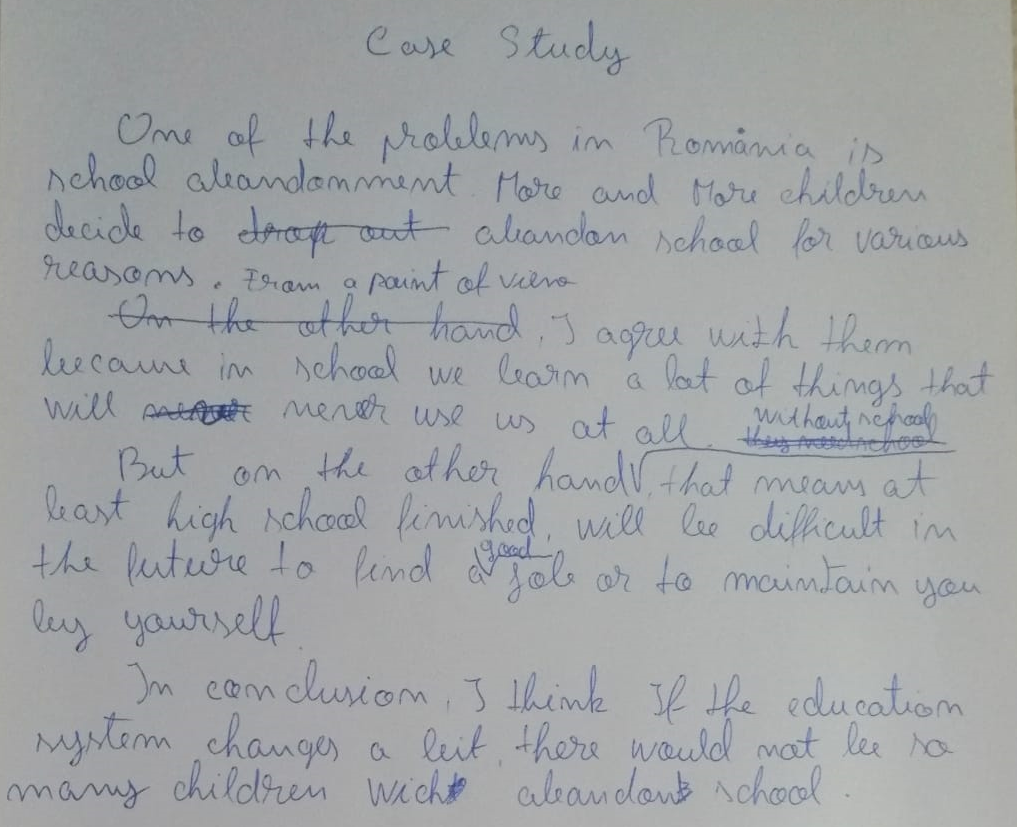 Case Study
One of the problems in România is
school abandonment. More and More children
decide to drop out abandon school for various
reasons. From a point of view
On the other hand, I agree with them
because in school we learn a lot of things that
will never use us at all. without school
they need school
But on the other hand, that means at
least high school finished, will be difficult in
the future to find a good job or to maintain you
by yourself.
In conclusion, I think If the education
system changes a bit, there would not be so
many children wich abandon school.